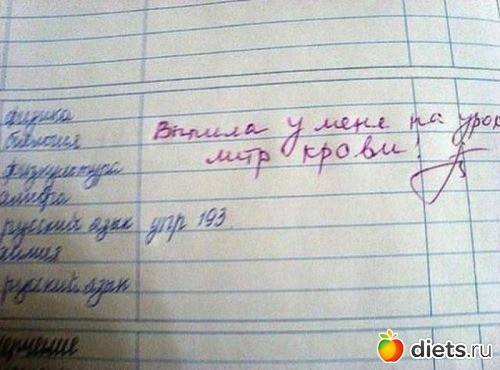 физика
биология
Выпила у меня на урок
литр крови!
физкультура
алгебра
русский язык упр 193.
химия
русский язык
черчение
diets.ru